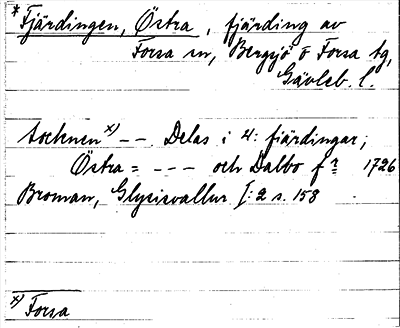 * Fjärdingen, Östra, fjärding av
Forsa sn, Bergsjö o Forsa tg,
Gävleb. l.
Socknen x) -- Delas i 4: fiärdingar;
Östra = --- och Dalbo f:n 1726
Broman, Glysisvallur I: 2 s. 158
x) Forsa